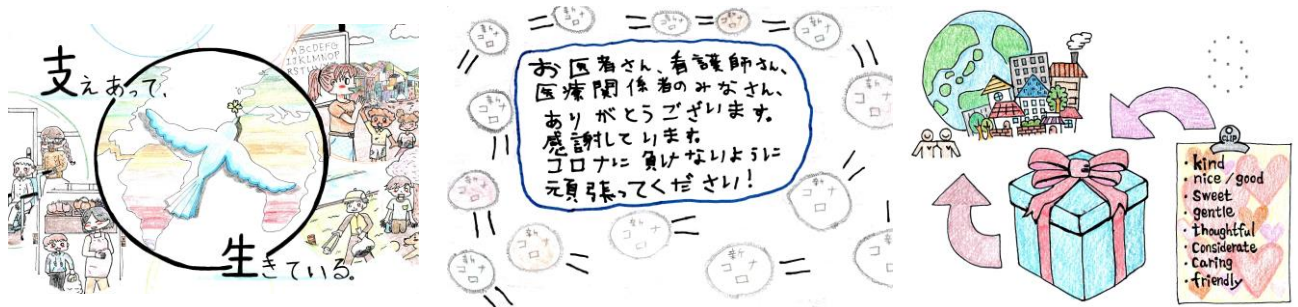 支えあって、
ABCDEFG
IJKLMNOP
生きている。
お医者さん、看護師さん、
医療関係者のみなさん、
ありがとうございます。
感謝しています。
コロナに負けないように
頑張ってください!
CLIP
・kind
・nice/good
・sweet
・gentle
・thoughtful
・Considerate
・caring
・friendly